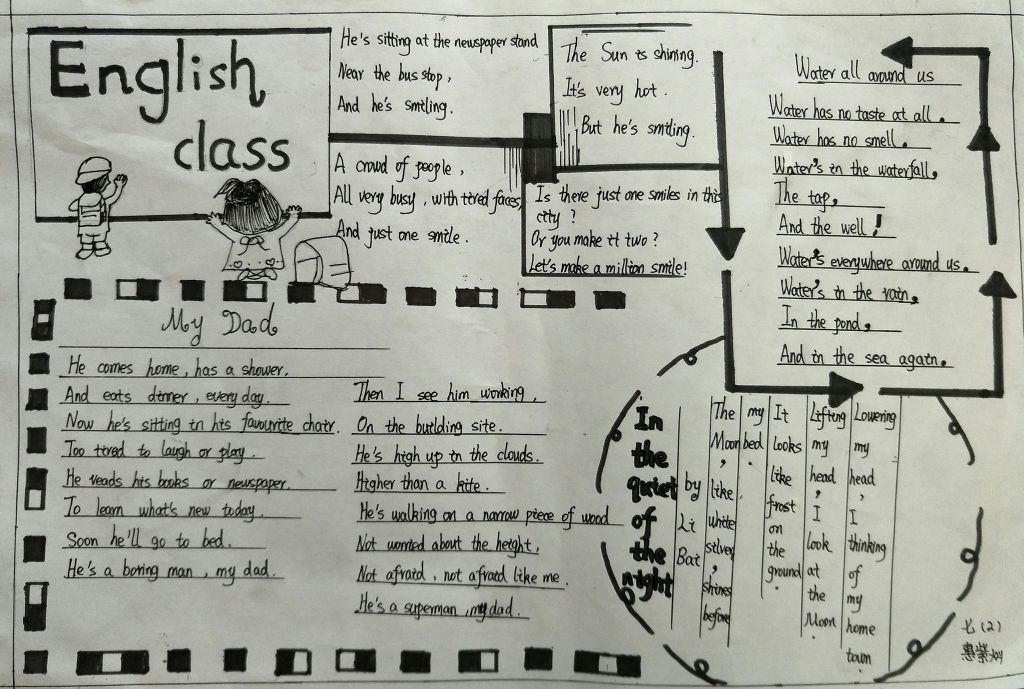 English
class
He's sitting at the newspaper stand
Near the bus stop,
And he's smiling.
A crowd of people,
All very busy, with tired faces,
And just one smile.
The Sun is shining.
It's very hot.
But he's smiling.
Is there just one smiles in this
city?
Or you make it two?
Let's make a million smile!
Water all around us
Water has no taste at all.
Water has no smell.
Water's in the waterfall,
The tap,
And the well!
Water's everywhere around us.
Water's in the rain,
In the pond,
And in the sea again.
My Dad
He comes home, has a shower,
And eats dinner, every day.
Now he's sitting in his favourite chair.
Too tired to laugh or play.
He reads his books or newspaper.
To learn what's new today.
Soon he'll go to bed.
He's a boring man, my dad.
Then I see him working,
On the building site.
He's high up in the clouds.
Higher than a kite.
He's walking on a narrow piece of wood
Not worried about the height,
Not afraid, not afraid like me.
He's a superman, my dad.
In the quiet of the night
by Li Bai
The Moon, like white silver, shines before
my bed.
It looks like frost on the ground.
Lifting my head, I look at the Moon.
Lowering my head, I thinking of my home town
七(2)